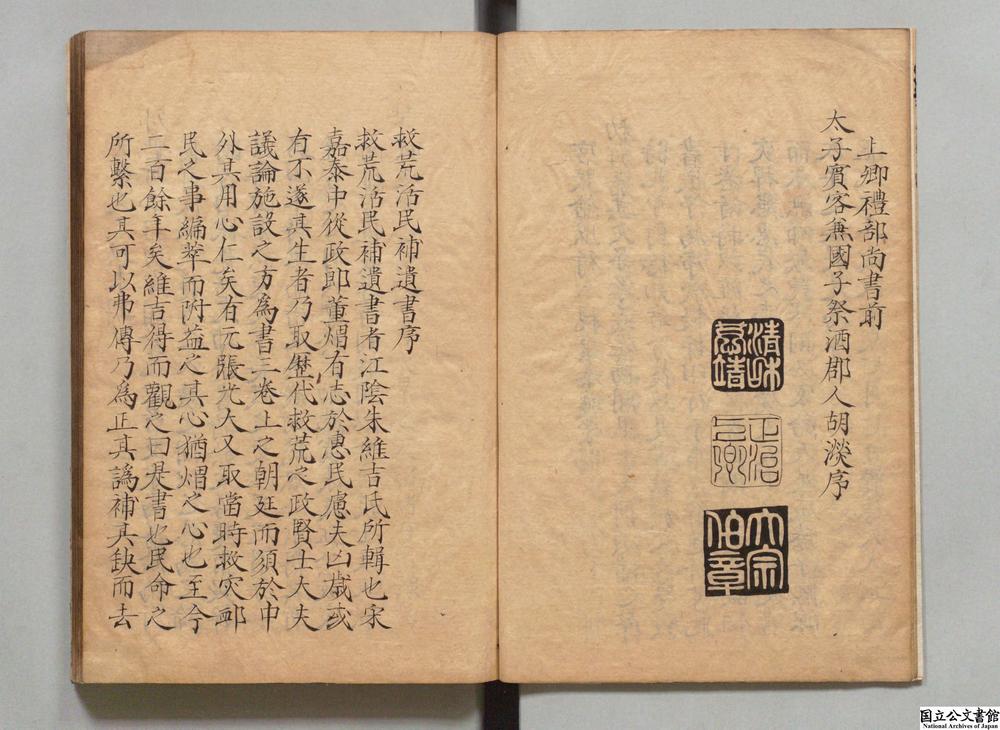 上卿禮部尚書前
太子賓客兼國子祭酒郡人胡濙序
大宗伯章
救荒活民補遺書序
救荒活民補遺書者江陰朱維吉氏所輯也宋
嘉泰中從政郎董熠有志於惠民慮夫凶歲或
有不遂其生者乃取歷代救荒之政賢士大夫
議論施設之方為書三卷上之朝廷而須於中
外其用心仁矣有元張光大又取當時救灾卹
民之事編萃而附益之其心猶熠之心也至今
二百餘年矣維吉得而觀之曰是書也民命之
所繫也其可以弗傳乃為正其譌補其缺而去
国立公文書館
National Archives of Japan